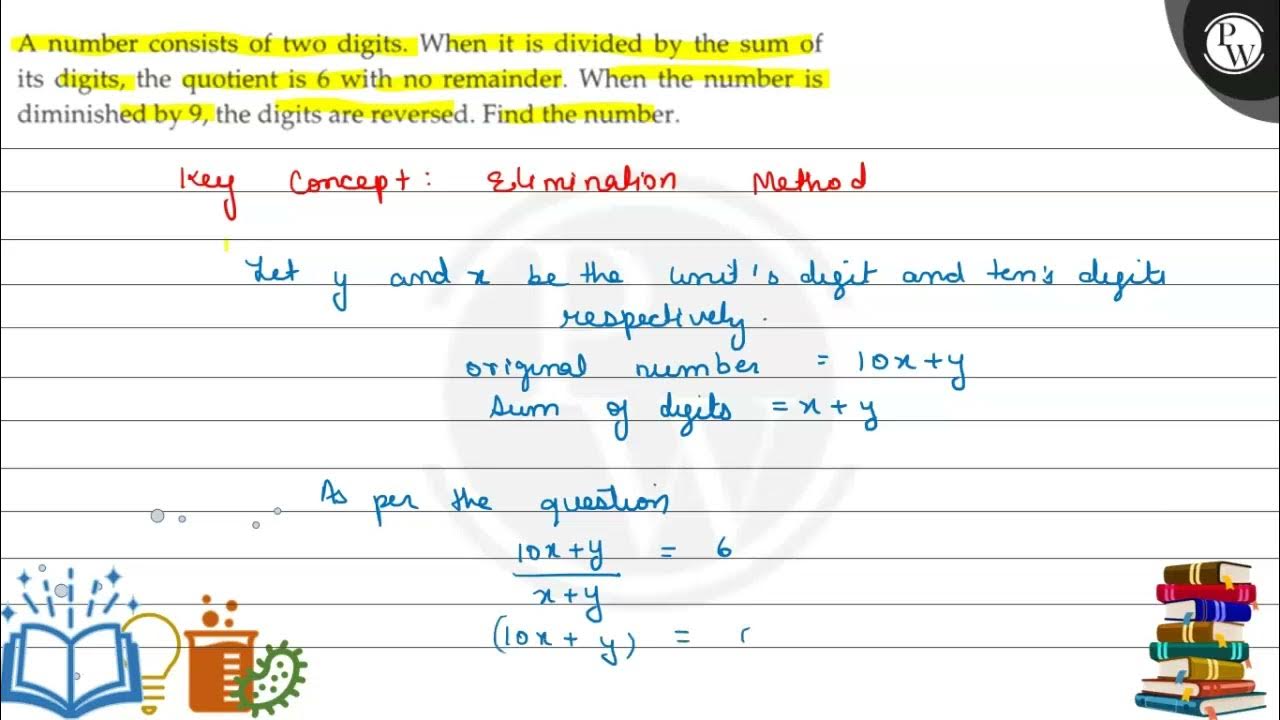 A number consists of two digits. When it is divided by the sum of
its digits, the quotient is 6 with no remainder. When the number is
diminished by 9, the digits are reversed. Find the number.
PW
Key Concept: Elimination Method
Let y and x be the unit's digit and ten's digits
respectively.
original number = 10x+y
Sum of digits = x+y
As per the question
10x+y = 6
x+y
(10x+ y) =